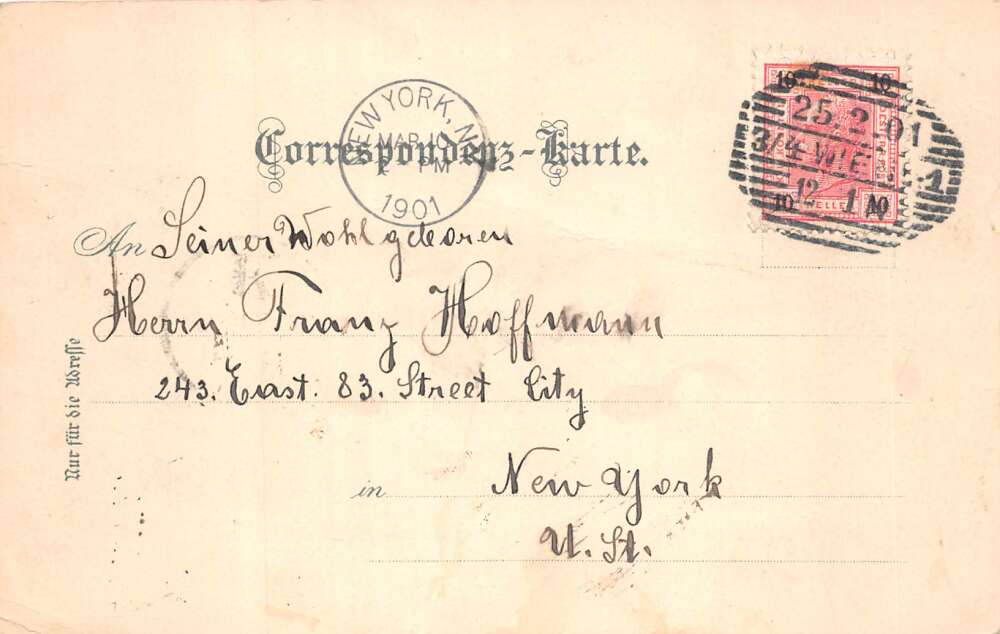 Correspondenz-Karte.
NEW YORK, N.Y.
MAR 10
PM
1901
10 10
25.2.01
3/4 WIEN 1
12 1
10 HELLER 10
An Seiner Wohlgeboren
Herrn Franz Hoffmann
243. East. 83. Street City
in New York
U. St.
Nur für die Adresse